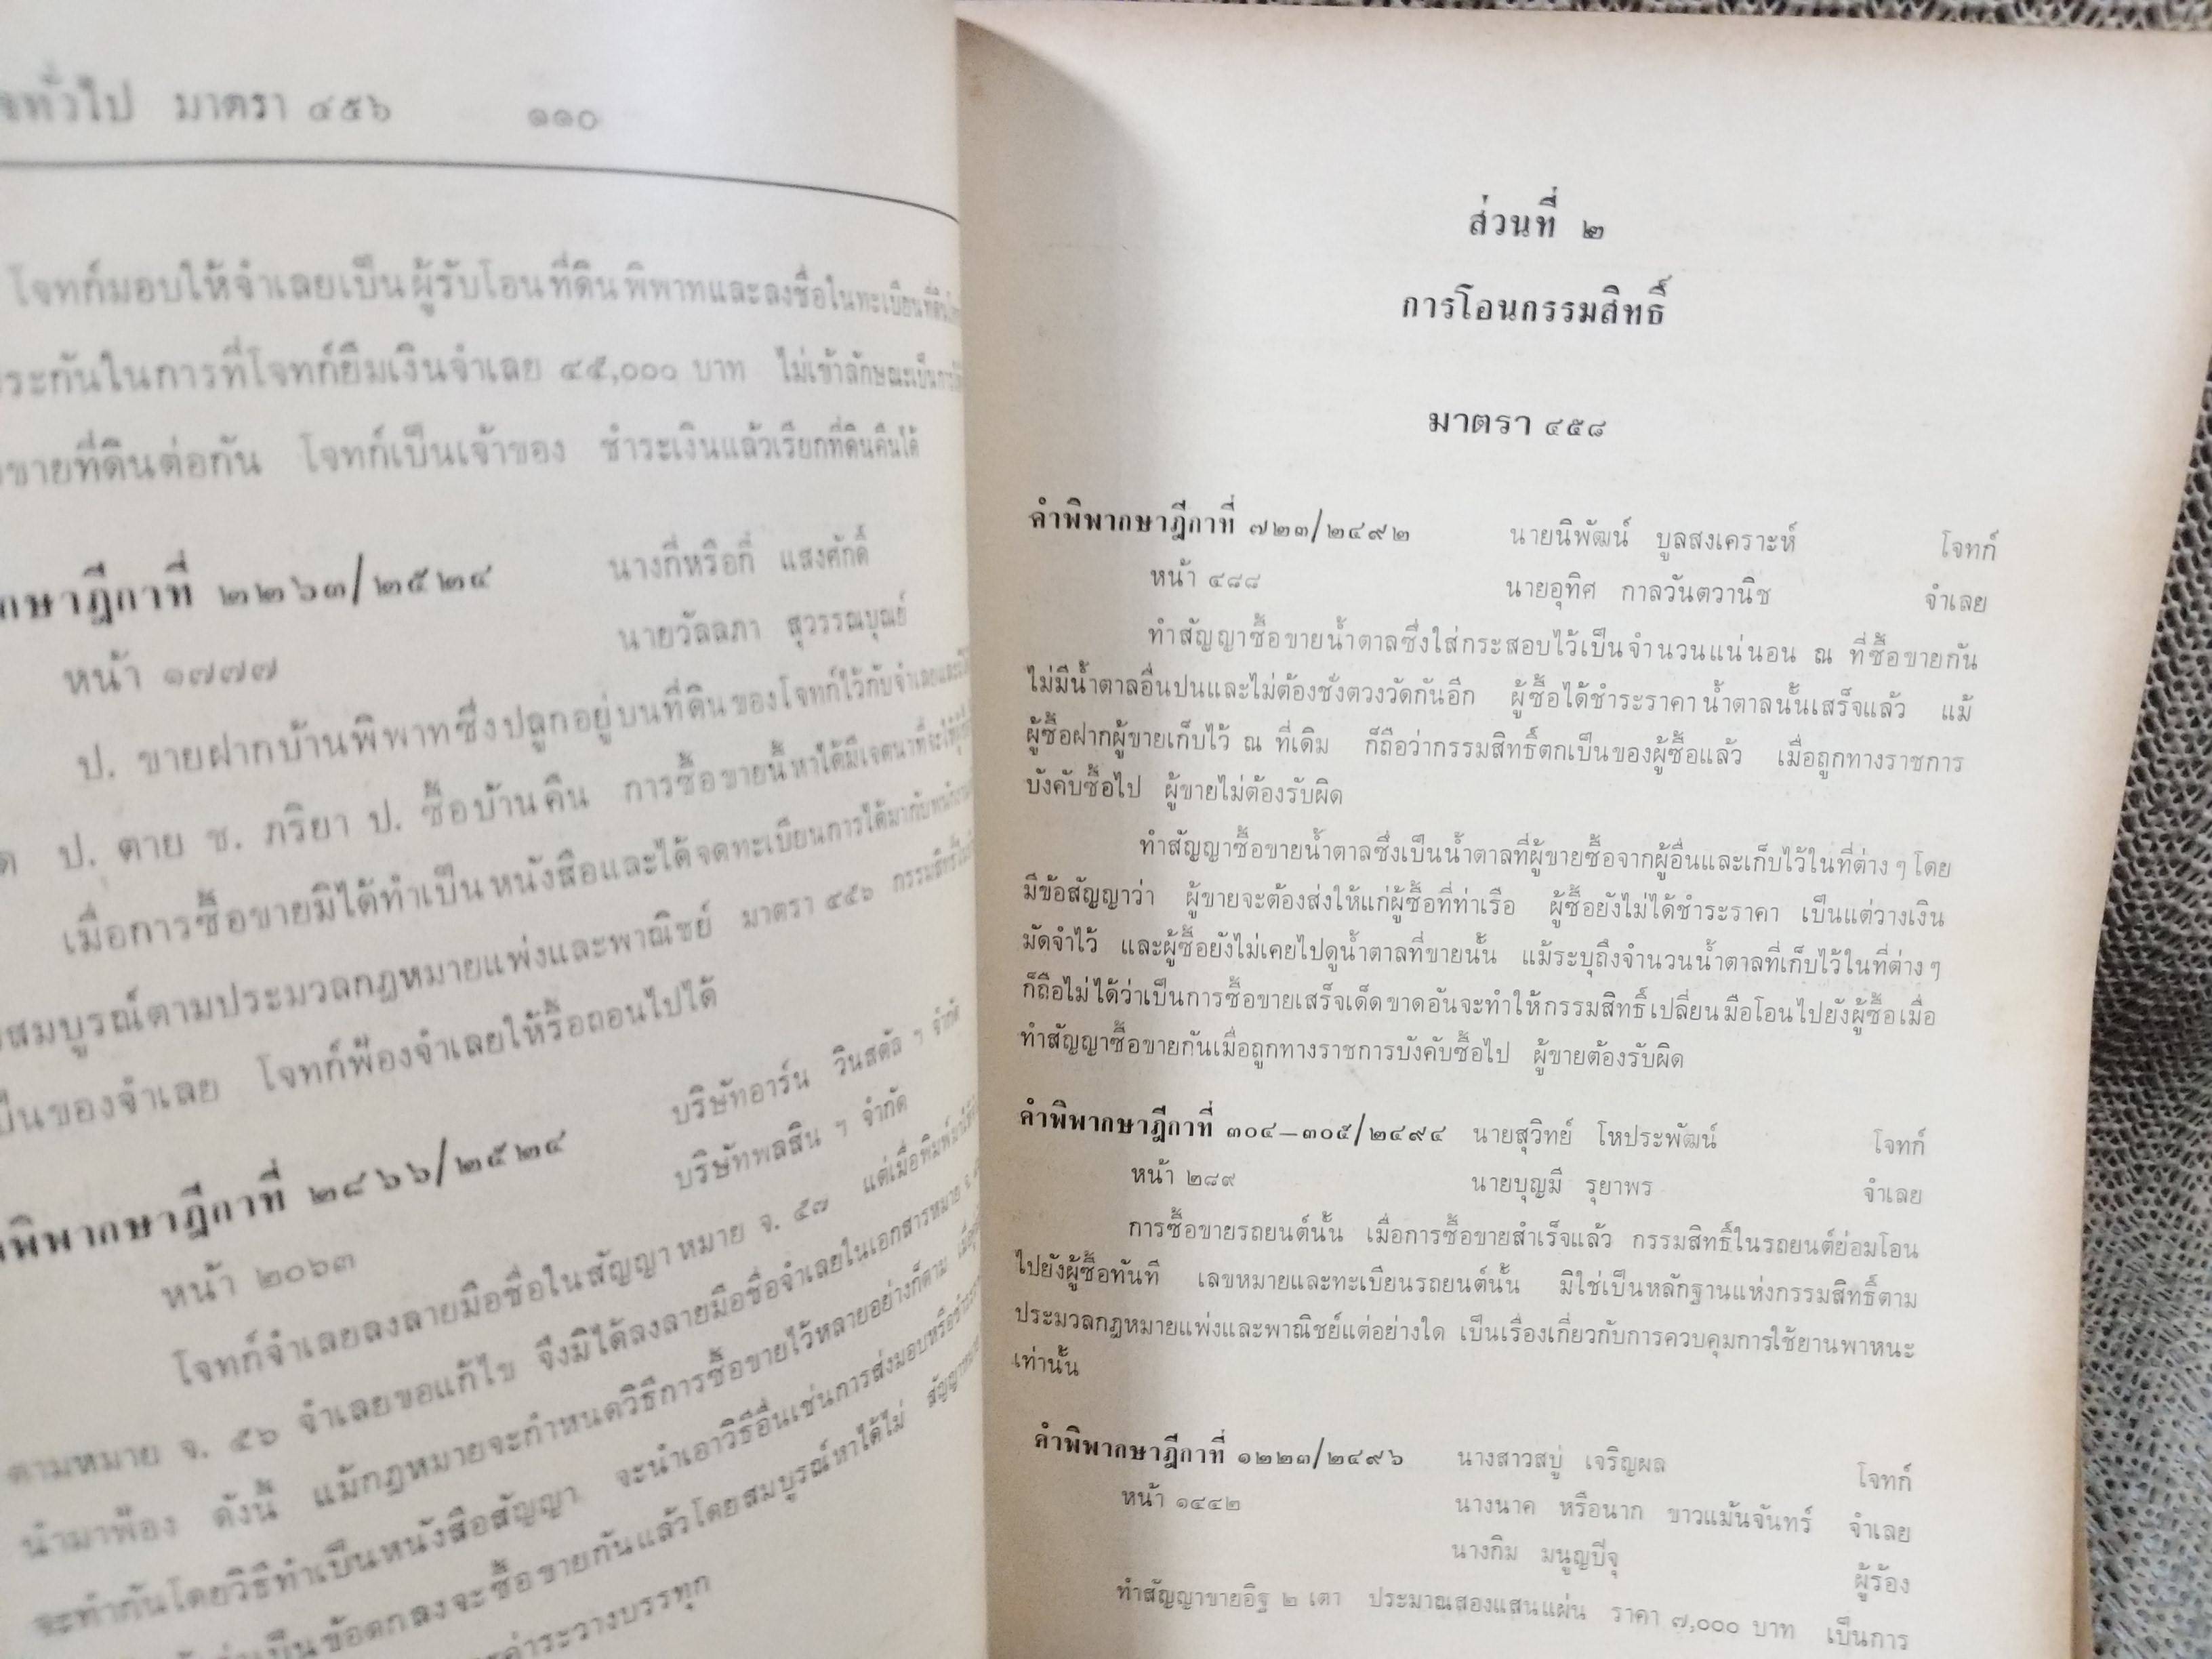 มาตรา ๔๕๖ ๑๑๐
โจทก์มอบให้จำเลยเป็นผู้รับโอนที่ดินพิพาทและลงชื่อในทะเบียนที่ดิน
ประกันในการที่โจทก์ยืมเงินจำเลย ๔๕,๐๐๐ บาท ไม่เข้าลักษณะเป็นการ
ขายที่ดินต่อกัน โจทก์เป็นเจ้าของ ชำระเงินแล้วเรียกที่ดินคืนได้
กษาฎีกาที่ ๒๒๖๓/๒๕๒๔ นางกี่หรือกี แสงศักดิ์
หน้า ๑๗๗๗ นายวัลลภา สุวรรณบุณย์
ป. ขายฝากบ้านพิพาทซึ่งปลูกอยู่บนที่ดินของโจทก์ไว้กับจำเลย
ป. ตาย ช. ภริยา ป. ซื้อบ้านคืน การซื้อขายนี้หาได้มีเจตนาที่จะ
เมื่อการซื้อขายมิได้ทำเป็นหนังสือและได้จดทะเบียนการได้มากับพนักงาน
สมบูรณ์ตามประมวลกฎหมายแพ่งและพาณิชย์ มาตรา ๔๕๖ กรรมสิทธิ์
เป็นของจำเลย โจทก์ฟ้องจำเลยให้รื้อถอนไปได้
พิพากษาฎีกาที่ ๒๘๖๖/๒๕๒๔ บริษัทอาร์น วินสตัล ฯ จำกัด
หน้า ๒๐๖๓ บริษัทพลสิน ฯ จำกัด
โจทก์จำเลยลงลายมือชื่อในสัญญาหมาย จ. ๕๗ แต่เมื่อพิมพ์
ตามหมาย จ. ๕๖ จำเลยขอแก้ไข จึงมิได้ลงลายมือชื่อจำเลยในเอกสารหมาย จ.
นำมาฟ้อง ดังนี้ แม้กฎหมายจะกำหนดวิธีการซื้อขายไว้หลายอย่างก็ตาม
จะทำกันโดยวิธีทำเป็นหนังสือสัญญา จะนำเอาวิธีอื่นเช่นการส่งมอบหรือ
เป็นข้อตกลงจะซื้อขายกันแล้วโดยสมบูรณ์หาได้ไม่
ค่าระวางบรรทุก
ส่วนที่ ๒
การโอนกรรมสิทธิ์
มาตรา ๔๕๘
คำพิพากษาฎีกาที่ ๗๒๓/๒๔๙๒ นายนิพัฒน์ บูลสงเคราะห์ โจทก์
หน้า ๔๘๘ นายอุทิศ กาลวันตวานิช จำเลย
ทำสัญญาซื้อขายน้ำตาลซึ่งใส่กระสอบไว้เป็นจำนวนแน่นอน ณ ที่ซื้อขายกัน
ไม่มีน้ำตาลอื่นปนและไม่ต้องชั่งตวงวัดกันอีก ผู้ซื้อได้ชำระราคาน้ำตาลนั้นเสร็จแล้ว แม้
ผู้ซื้อฝากผู้ขายเก็บไว้ ณ ที่เดิม ก็ถือว่ากรรมสิทธิ์ตกเป็นของผู้ซื้อแล้ว เมื่อถูกทางราชการ
บังคับซื้อไป ผู้ขายไม่ต้องรับผิด
ทำสัญญาซื้อขายน้ำตาลซึ่งเป็นน้ำตาลที่ผู้ขายซื้อจากผู้อื่นและเก็บไว้ในที่ต่าง ๆ โดย
มีข้อสัญญาว่า ผู้ขายจะต้องส่งให้แก่ผู้ซื้อที่ท่าเรือ ผู้ซื้อยังไม่ได้ชำระราคา เป็นแต่วางเงิน
มัดจำไว้ และผู้ซื้อยังไม่เคยไปดูน้ำตาลที่ขายนั้น แม้ระบุถึงจำนวนน้ำตาลที่เก็บไว้ในที่ต่าง ๆ
ก็ถือไม่ได้ว่าเป็นการซื้อขายเสร็จเด็ดขาดอันจะทำให้กรรมสิทธิ์เปลี่ยนมือโอนไปยังผู้ซื้อเมื่อ
ทำสัญญาซื้อขายกันเมื่อถูกทางราชการบังคับซื้อไป ผู้ขายต้องรับผิด
คำพิพากษาฎีกาที่ ๓๐๔–๓๐๕/๒๔๙๔ นายสุวิทย์ โหประพัฒน์ โจทก์
หน้า ๒๘๙ นายบุญมี รุยาพร จำเลย
การซื้อขายรถยนต์นั้น เมื่อการซื้อขายสำเร็จแล้ว กรรมสิทธิ์ในรถยนต์ย่อมโอน
ไปยังผู้ซื้อทันที เลขหมายและทะเบียนรถยนต์นั้น มิใช่เป็นหลักฐานแห่งกรรมสิทธิ์ตาม
ประมวลกฎหมายแพ่งและพาณิชย์แต่อย่างใด เป็นเรื่องเกี่ยวกับการควบคุมการใช้ยานพาหนะ
เท่านั้น
คำพิพากษาฎีกาที่ ๑๒๒๓/๒๔๙๖ นางสาวสบู่ เจริญผล โจทก์
หน้า ๑๔๔๒ นางนาค หรือนาก ขาวแม้นจันทร์ จำเลย
นางกิม มนูญปีจุ ผู้ร้อง
ทำสัญญาขายอิฐ ๒ เตา ประมาณสองแสนแผ่น ราคา ๗,๐๐๐ บาท เป็นการ